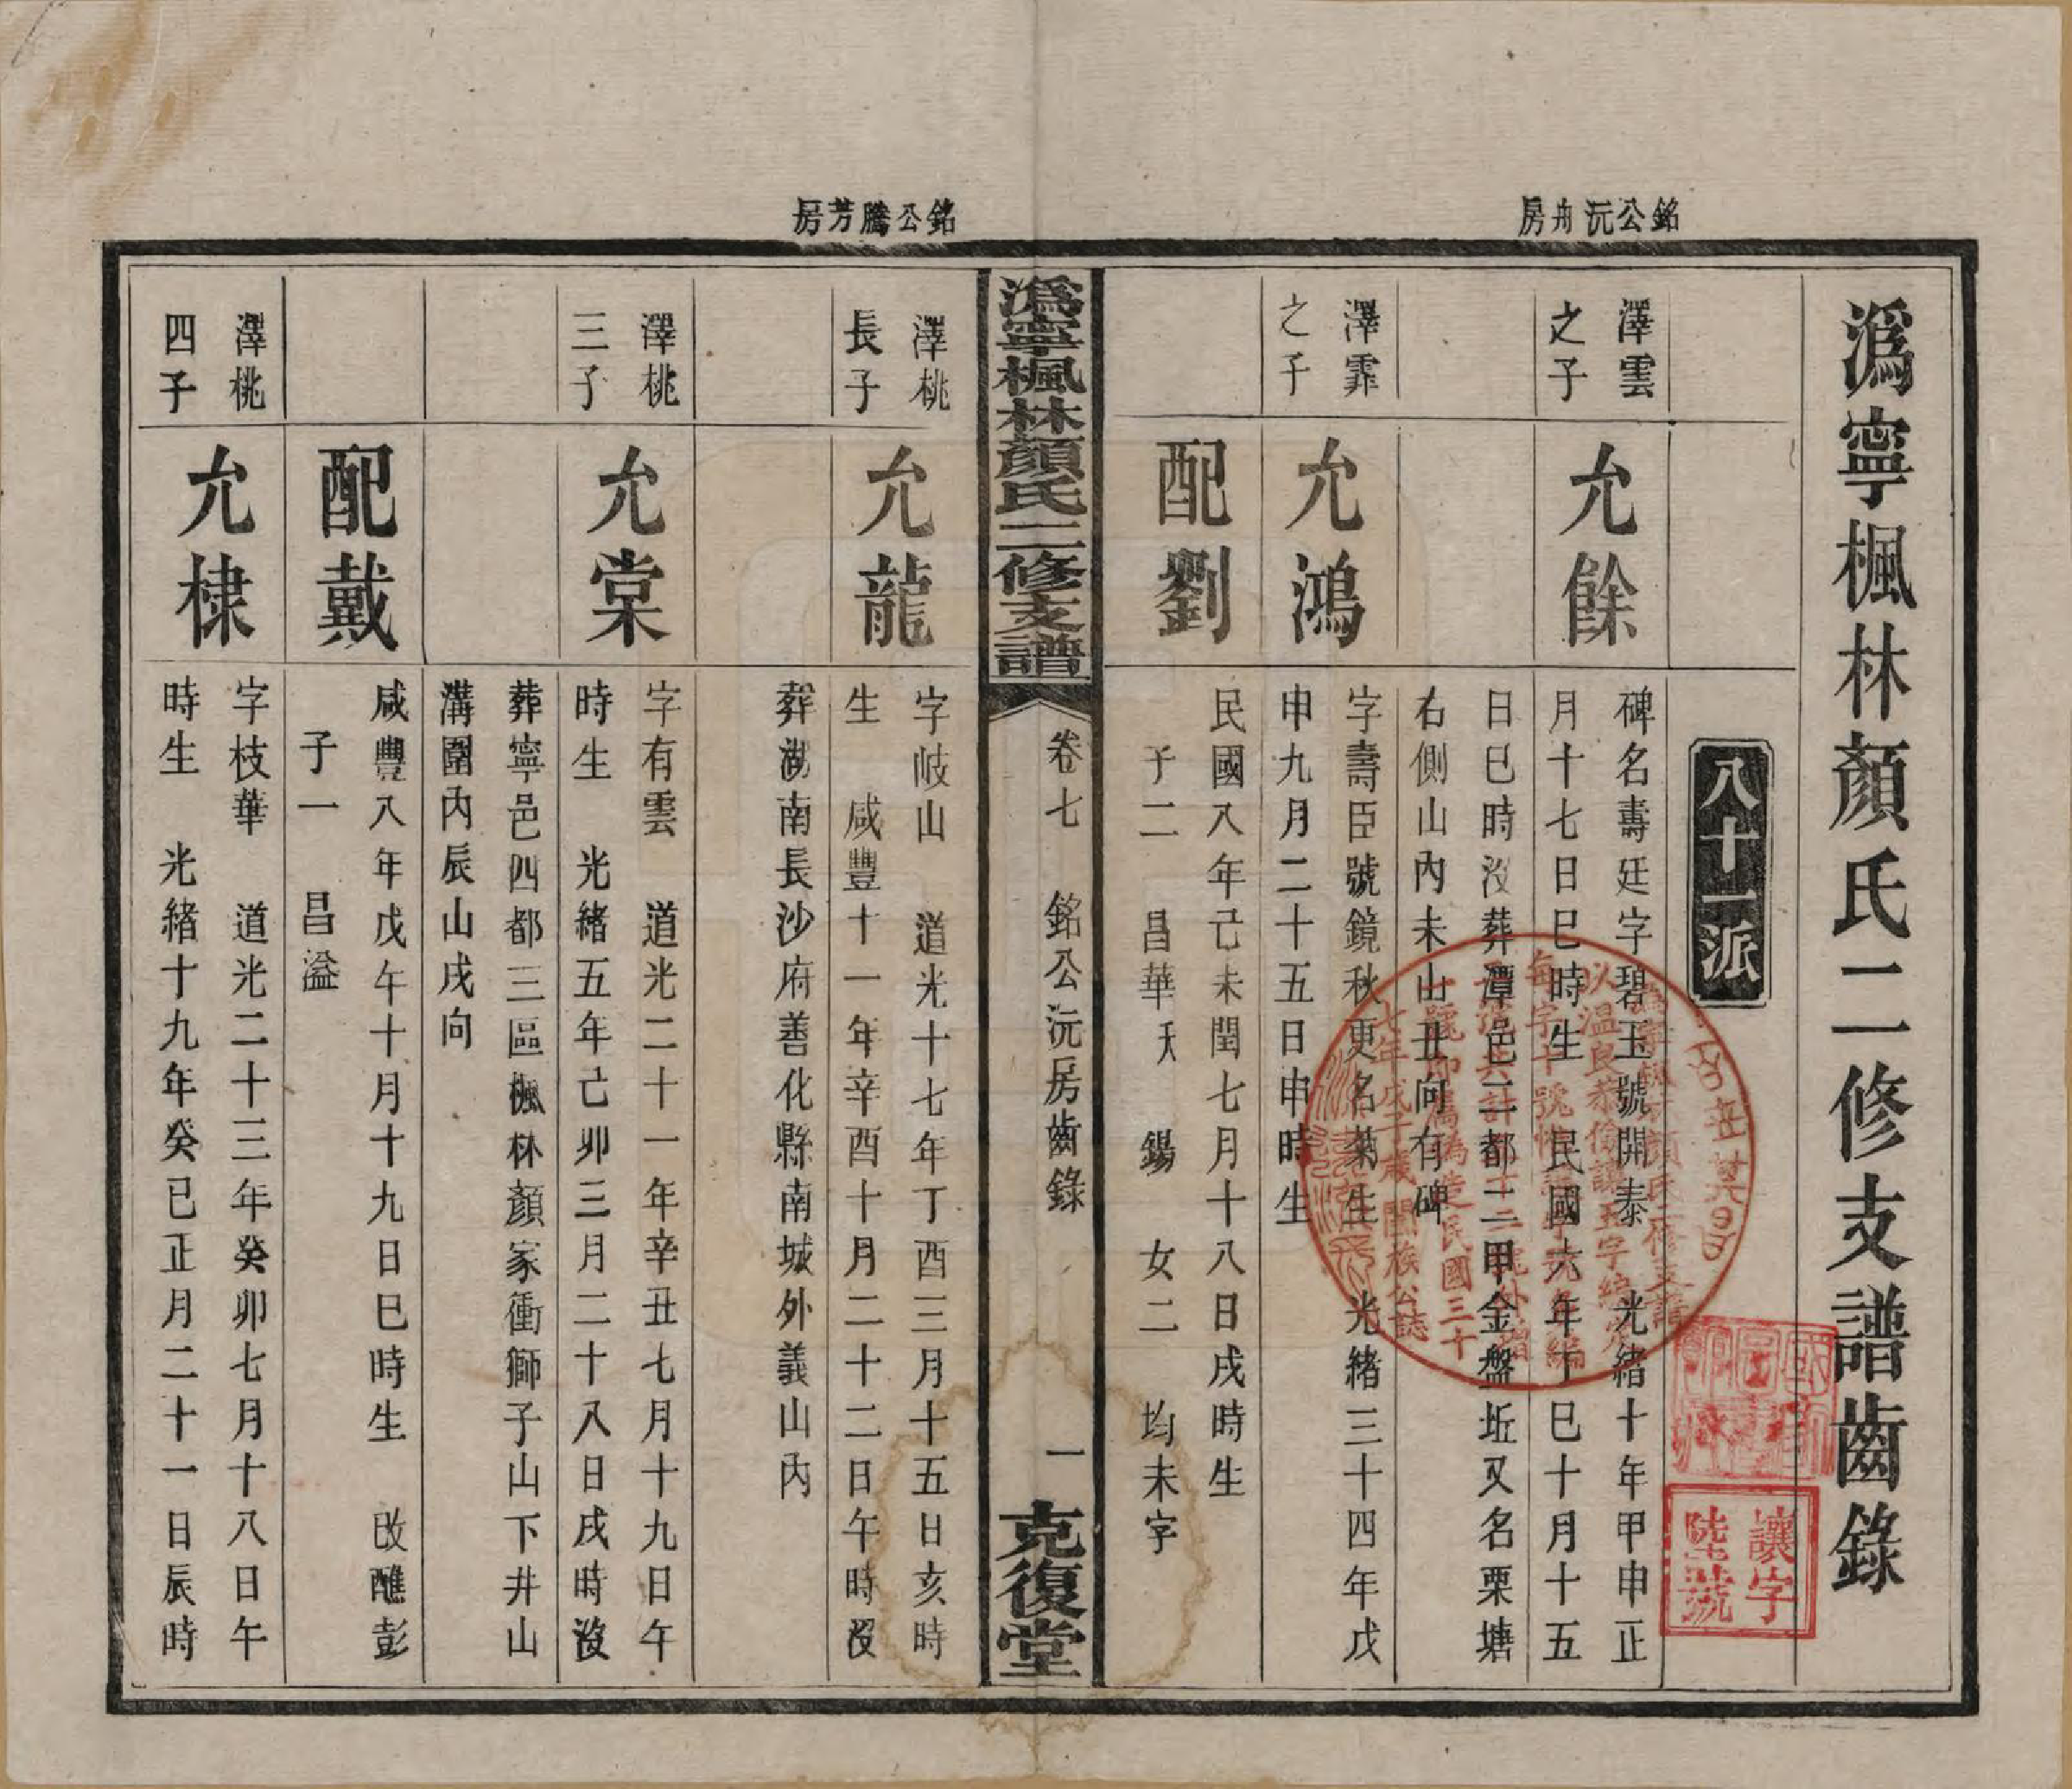 溈寧楓林顏氏二修支譜齒錄
八十一派
銘公沅舟房
澤雲
之子
允餘
碑名壽廷字碧玉號開泰　光緒十年甲申正
月十七日巳時生　民國六年丁巳十月十五
日巳時沒葬潭邑二都二甲金盤坵又名栗塘
右側山內未山丑向有碑
澤霏
之子
允鴻
字壽臣號鏡秋更名菊生　光緒三十四年戊
申九月二十五日申時生
配劉
民國八年己未閏七月十八日戌時生
子二　昌華　夭　錫　女二　均未字
溈寧楓林顏氏二修支譜
卷七　銘公沅房齒錄
一
克復堂
銘公騰芳房
澤桃
長子
允龍
字岐山　道光十七年丁酉三月十五日亥時
生　咸豐十一年辛酉十月二十二日午時沒
葬湖南長沙府善化縣南城外義山內
澤桃
三子
允棠
字有雲　道光二十一年辛丑七月十九日午
時生　光緒五年己卯三月二十八日戌時沒
葬寧邑四都三區楓林顏家衝獅子山下井山
溝圍內辰山戌向
配戴
咸豐八年戊午十月十九日巳時生　改醮彭
子一　昌溢
澤桃
四子
允棣
字枝華　道光二十三年癸卯七月十八日午
時生　光緒十九年癸巳正月二十一日辰時
讓字
陸號